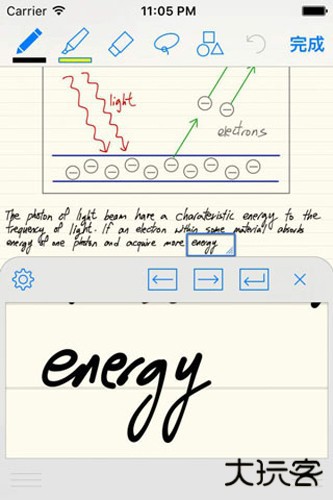 Carrier 11:05 PM
完成
light
electrons
The photon of light beam have a charateristic energy to the
frequency of light. If an electron within some material absorbs
energy of one photon and acquire more energy
energy
大玩客